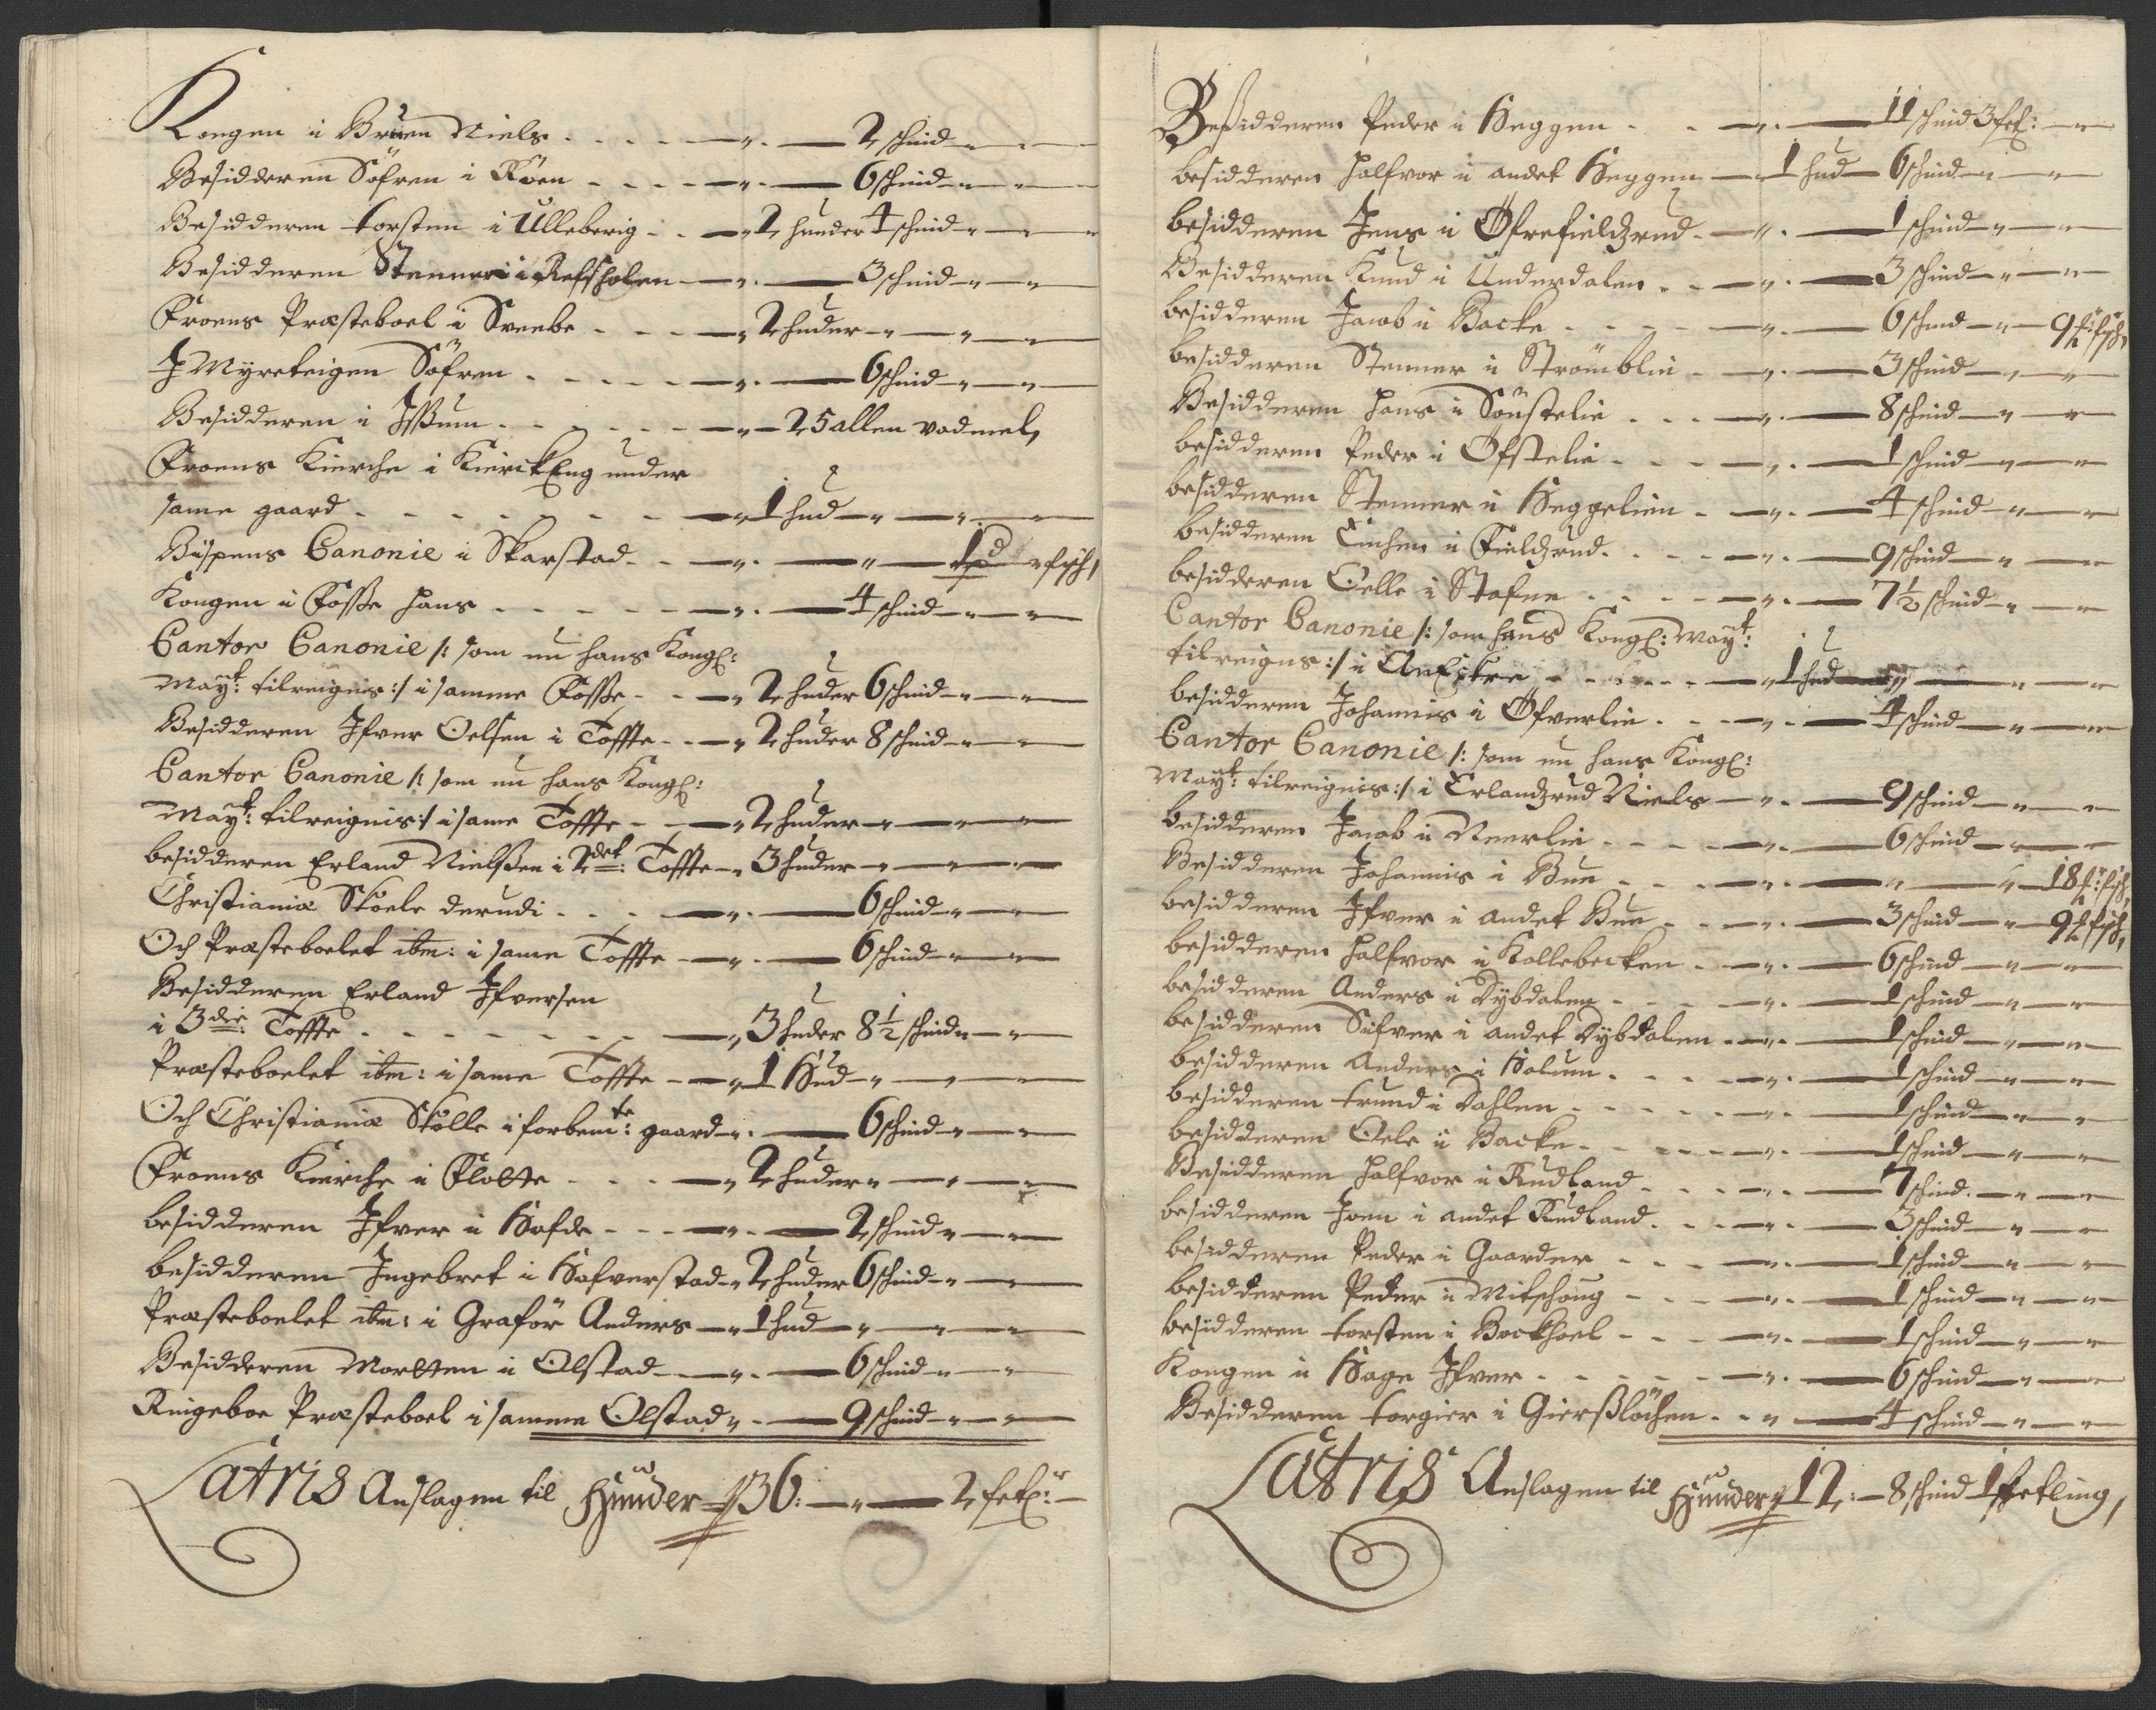 Kongen i Bruen Niels - - - - „ - 2 schind - „ -
Besidderen Söfren i Röen - - - - „ - 6 schind - „ -
Besidderen torsten i Ulleberig - - „ 2 huuder 4 schind - „ -
Besidderen Stenner i Refsholen - „ - 3 schind - „ -
Froens Præsteboel i Sveebe - - - „ 2 huder - „ - „ -
J Myreteigen Söfren - - - - „ - 6 schind - „ -
Besidderen i Jßum - - - - „ - 25 allen vadmel,
Froens Kierche i KierckEng under
same gaard - - - - - „ 1 hud - „ - „ -
Bispens Canonie i Skarstad - - „ - „ - 1 pd fisch,
Kongen i Foße Hans - - - - „ - 4 schind - „ -
Cantor Canonie /: som nu hans Kongl:
Mayt: tilreignis :/ i samme Foße - - „ 2 huder 6 schind - „ -
Besidderen Jfver Oelsen i Toffte - - „ 2 huder 8 schind - „ -
Cantor Canonie /: som nu hans Kongl:
Mayt: tilreignis :/ i same Toffte - - „ 2 huder - „ - „ -
besidderen Erland Nielßen i 2det: Toffte - „ 3 huder - „ - „ -
Christianiæ Skoele derudi - - - „ - 6 schind - „ -
Och Præsteboelet ibm: i same Toffte - „ - 6 schind - „ -
Besidderen Erland Jfversen
i 3die: Toffte - - - - - „ 3 huder 8 1/2 schind - „ -
Præsteboelet ibm: i same Toffte - „ 1 Hud - „ - „ -
Och Christianiæ Skolle i forbemte: gaard - „ - 6 schind - „ -
Froens Kierche i Flotte - - - „ 2 huder - „ - „ -
besidderen Jfver i Hofde - - - „ - 2 schind - „ -
besidderen Ingebret i Hafverstad - „ 2 huder 6 schind - „ -
Præsteboelet ibm: i Graför Anders - „ 1 hud - „ - „ -
Besidderen Morten i Olstad - „ - 6 schind - „ -
Ringeboe Præsteboel i samme Olstad „ - 9 schind - „ -
Latris Anslagen til Huuder 36: - „ - 2 fetl: -
Beßidderen Peder i Heggen - - „ - 11 schind 3 fetl: -
besidderen Halfvor i andet Heggen - „ 1 hud - 6 schind - „ -
besidderen Jens i Öfrefieldzrud - „ - 1 schind - „ -
Besidderen Knud i Underdalen - - „ - 3 schind - „ -
besidderen Jacob i Backe - - - - „ - 6 schind - „ - 9 fisch,
besidderen Stenner i Strömblie - „ - 3 schind - „ -
Besidderen Hans i Sönstelie - - - „ - 8 schind - „ -
besidderen Peder i Öfstelie - - - „ - 1 schind - „ -
besidderen Stenner i Heggelien - „ - 4 schind - „ -
besidderen i Fieldzrud - - - „ - 9 schind - „ -
besidderen Oelle i Stafne - - - „ - 7 1/2 schind - „ -
Cantor Canonie /: som hans Kongl: Mayt:
tilreignis :/ i - - - - „ 1 hud - „ - „ -
besidderen Johannis i Öfverlie - - „ - 4 schind - „ -
Cantor Canonie /: som nu hans Kongl:
Mayt: tilreignis :/ i Erlandzrud Niels - „ - 9 schind - „ -
besidderen Jacob i Neerlie - - - „ - 6 schind - „ -
Besidderen Johannis i Bue - - - „ - „ - „ - 18 fisch,
besidderen Jfver i andet Bue - - „ - 3 schind - „ - 9 fisch,
besidderen Halfvor i Kollebecken - „ - 6 schind - „ -
besidderen Anders i Dybdalen - - - „ - 1 schind - „ -
besidderen Sifver i andet Dybdalen - „ - 1 schind - „ -
besidderen Anders i Holum - - - „ - 1 schind - „ -
besidderen trund i Dahlen - - - „ - 1 schind - „ -
besidderen Oele i Backe - - - „ - 1 schind - „ -
Besidderen Halfvor i Rudland - - „ - 7 schind - „ -
besidderen Joen i andet Rudland - - „ - 3 schind - „ -
besidderen Peder i Gaarder - - - „ - 1 schind - „ -
besidderen Peder i Mitschoug - - - „ - 1 schind - „ -
besidderen torsten i Bockhoel - - - „ - 1 schind - „ -
Kongen i Hage Jfver - - - - „ - 6 schind - „ -
Besidderen torgier i Gierßlöchen - - „ - 4 schind - „ -
Latris Anslagen til Huuder 12: - 8 schind 1 fetling,